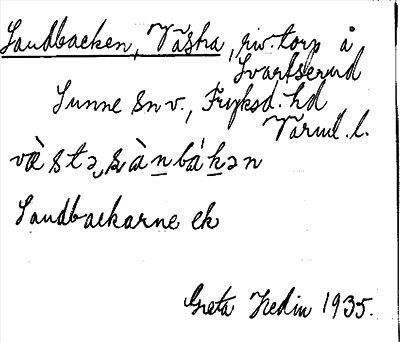 Sandbacken, Västra, riv. torp å
Svartserud
Sunne sn v., Fryksd. hd
Värml. l.
væ̀stə, sànbákən
Sandbackarne ek
Greta Hedin 1935.